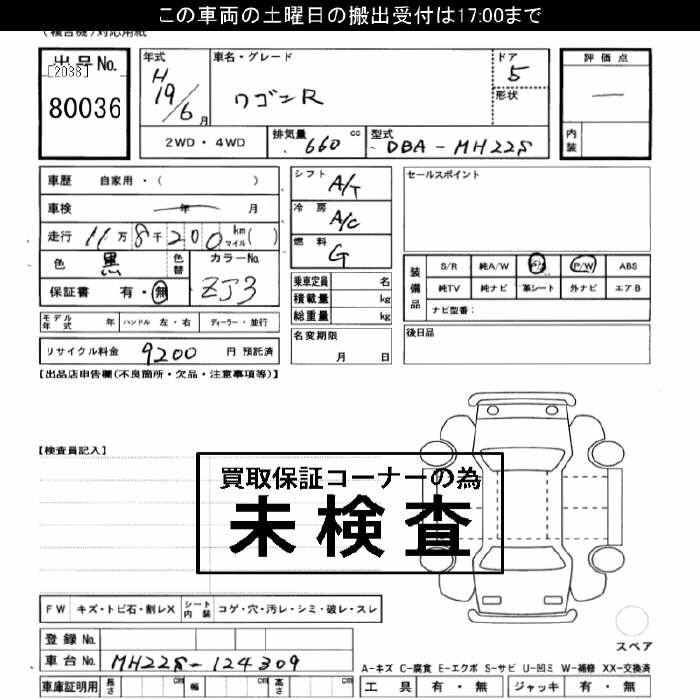 この車両の土曜日の搬出受付は17:00まで
(複合機)対応用紙
出品No.
[2038]
80036
年式
H
19/6月
車名・グレード
ワゴンR
ドア
5
形状
評価点
—
内装
2WD・4WD
排気量 660 cc
型式 DBA-MH22S
車歴 自家用・( )
車検 年 月
走行 11万8千200 km マイル( )
色 黒 色替
カラーNo. ZJ3
保証書 有・無
シフト A/T
冷房 A/C
燃料 G
乗車定員 名
積載量 kg
総重量 kg
セールスポイント
装備品
S/R 純A/W P/W ABS
純TV 純ナビ 革シート 外ナビ エアB
ナビ型番:
モデル年式 年 ハンドル 左・右 ディーラー・並行
リサイクル料金 9200 円 預託済
名変期限
月 日
後日品
【出品店申告欄(不良箇所・欠品・注意事項等)】
【検査員記入】
買取保証コーナーの為
未検査
FW キズ・トビ石・割レX シート内装 コゲ・穴・汚レ・シミ・破レ・スレ
登録No.
車台No. MH22S-124309
スペア
A-キズ C-腐食 E-エクボ S-サビ U-凹ミ W-補修 XX-交換済
車庫証明用 長さ cm 幅 cm 高さ cm
工具 有・無 ジャッキ 有・無